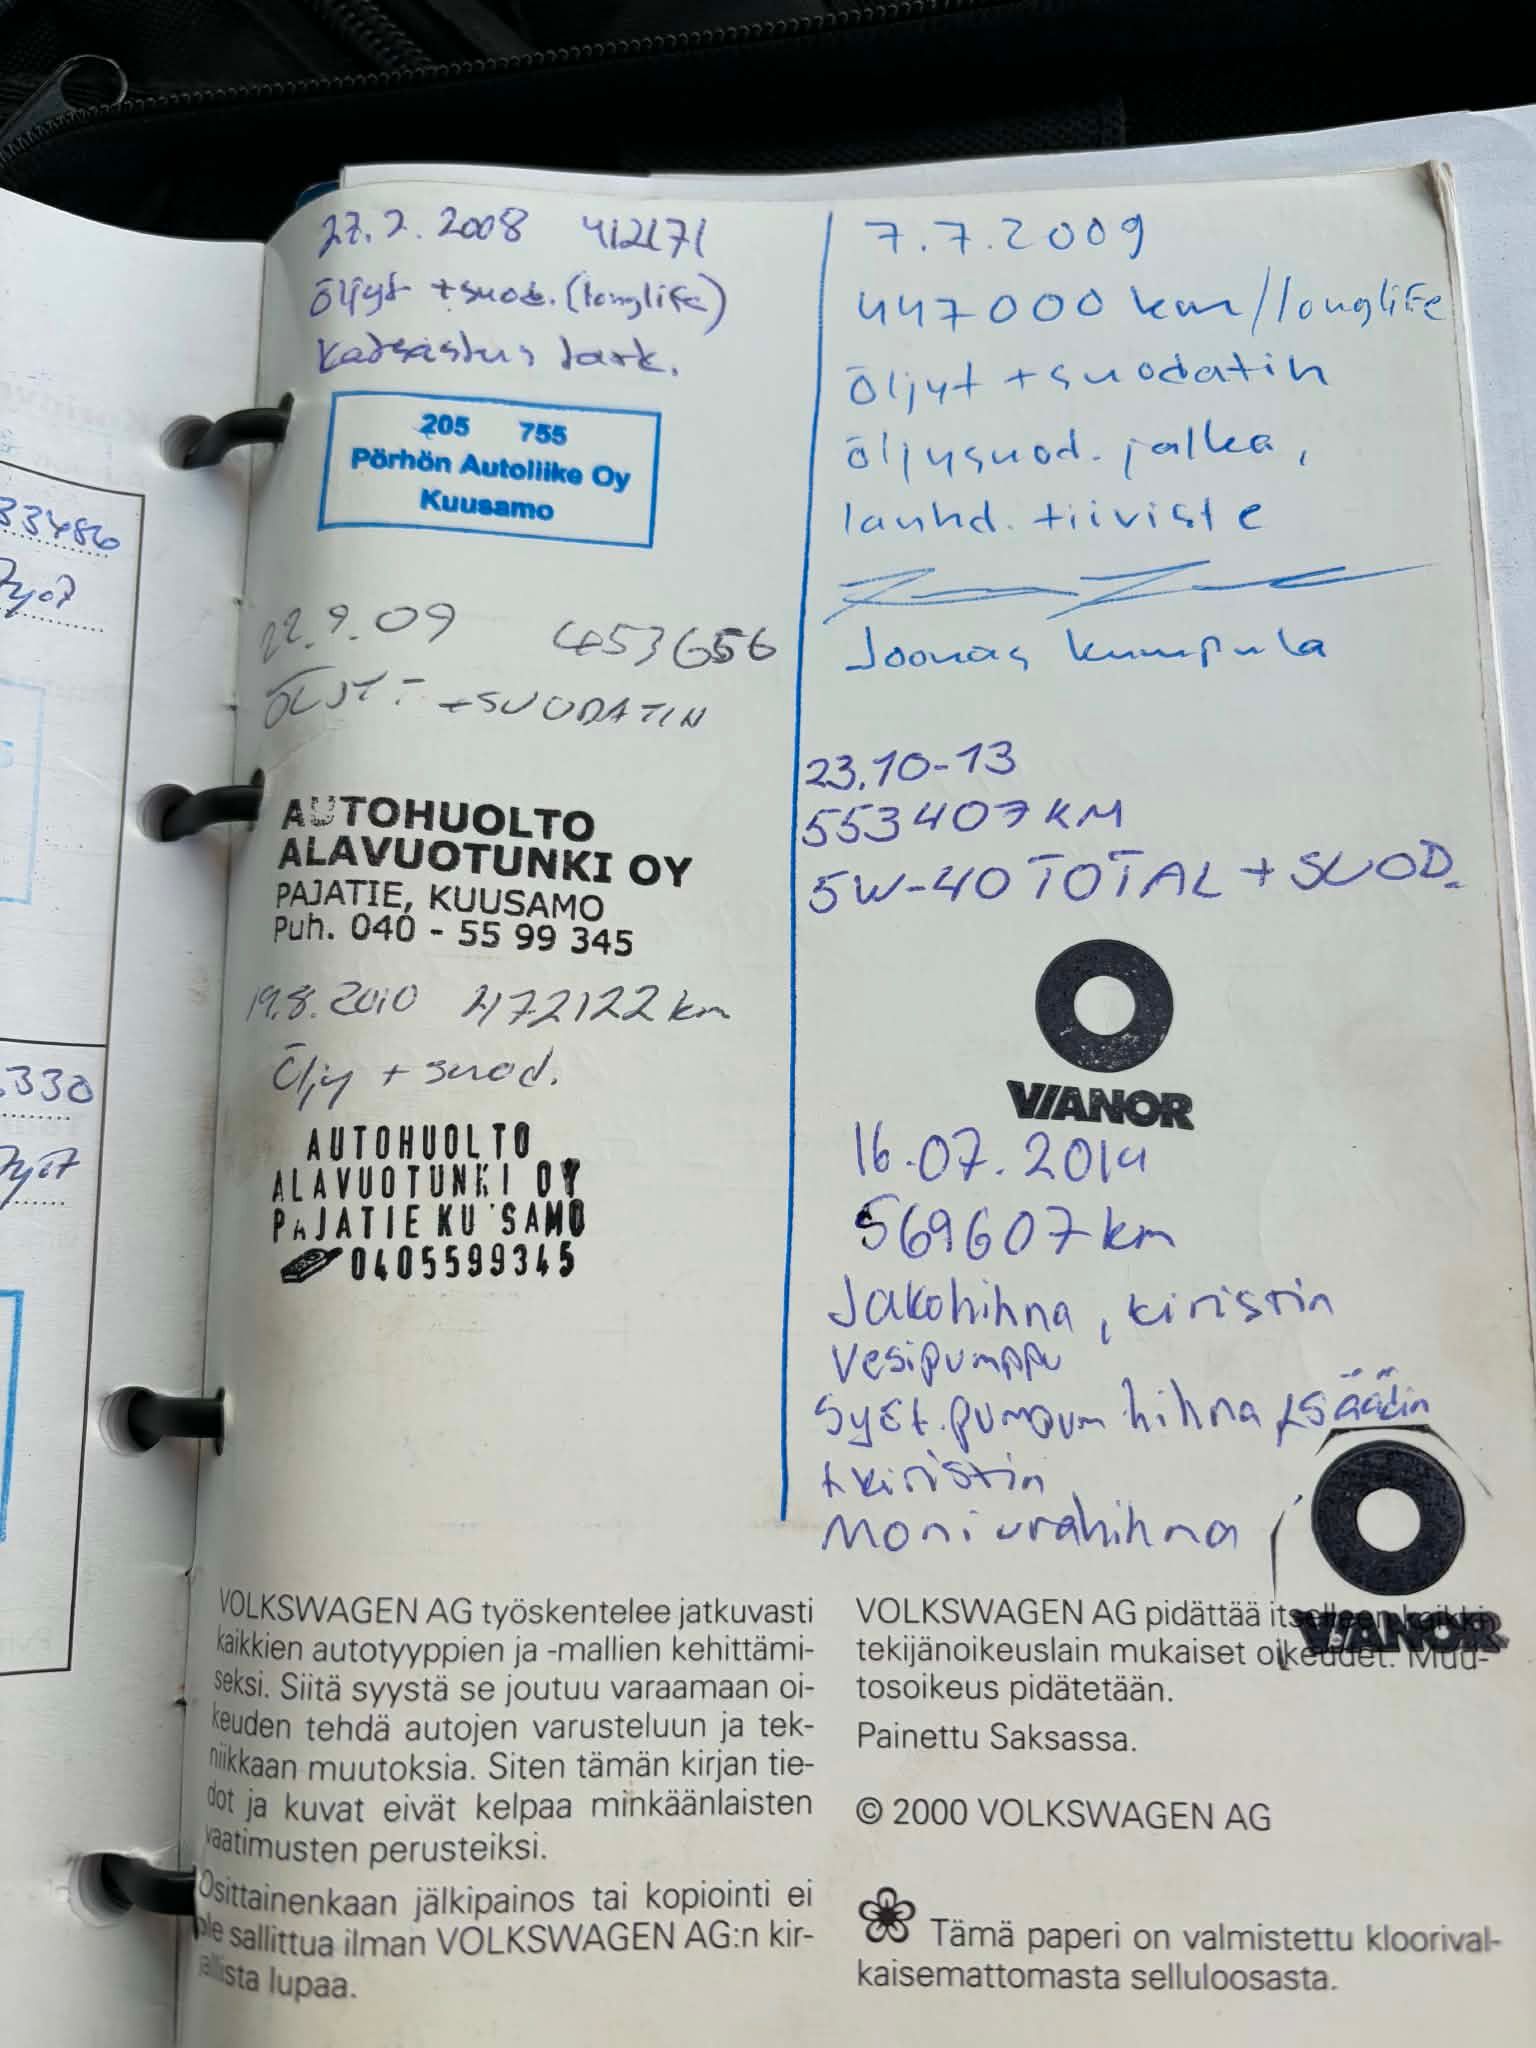 27.2.2008 412171
öljyt +suod. (longlife)
katsastus tark.
205 755
Pörhön Autoliike Oy
Kuusamo
22.9.09 453656
ÖLJYT +SUODATIN
AUTOHUOLTO
ALAVUOTUNKI OY
PAJATIE, KUUSAMO
Puh. 040 - 55 99 345
19.8.2010 472122 km
Öljy + suod.
AUTOHUOLTO
ALAVUOTUNKI OY
PAJATIE KU SAMO
0405599345
7.7.2009
447000 km/longlife
öljyt + suodatin
öljysuod. jalka,
lauhd. tiiviste
Joonas Kumpula
23.10-13
553407 KM
5W-40 TOTAL + SUOD.
VIANOR
16.07.2014
569607 km
Jakohihna, kiristin
Vesipumppu
Syöt. pumpun hihna + säädin
+ kiristin
Moniurahihna
VIANOR
VOLKSWAGEN AG työskentelee jatkuvasti
kaikkien autotyyppien ja -mallien kehittämi-
seksi. Siitä syystä se joutuu varaamaan oi-
keuden tehdä autojen varusteluun ja tek-
niikkaan muutoksia. Siten tämän kirjan tie-
dot ja kuvat eivät kelpaa minkäänlaisten
vaatimusten perusteiksi.
Osittainenkaan jälkipainos tai kopiointi ei
ole sallittua ilman VOLKSWAGEN AG:n kir-
jallista lupaa.
VOLKSWAGEN AG pidättää itselleen kaikki
tekijänoikeuslain mukaiset oikeudet. Muu-
tosoikeus pidätetään.
Painettu Saksassa.
© 2000 VOLKSWAGEN AG
Tämä paperi on valmistettu kloorival-
kaisemattomasta selluloosasta.
33486
330